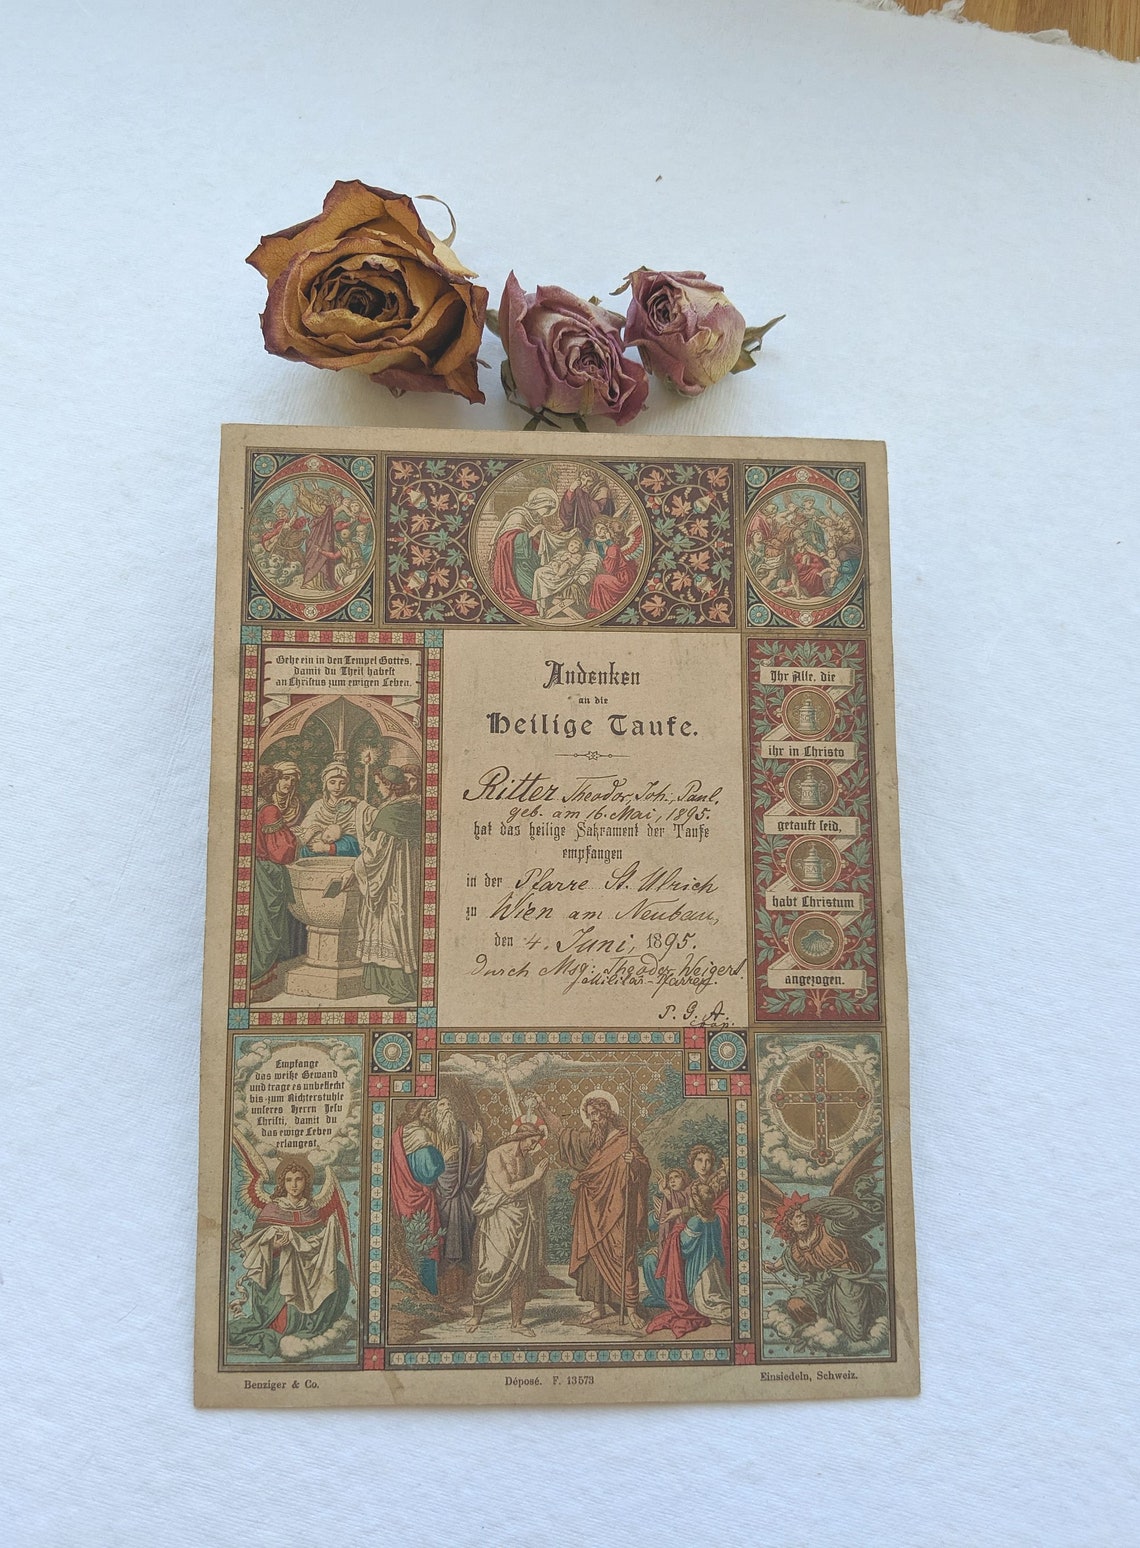 Gehe ein in den Tempel Gottes,
damit du Theil habest
an Christus zum ewigen Leben.
Andenken
an die
Heilige Taufe.
Ritter Theodor, Joh., Paul,
geb. am 16. Mai, 1895.
hat das heilige Sakrament der Taufe
empfangen
in der Pfarre St. Ulrich
zu Wien am Neubau,
den 4. Juni, 1895.
durch Msg: Theodor Weigert
Militär-Pfarrer.
P. G. A.
Ihr Alle, die
ihr in Christo
getauft seid,
habt Christum
angezogen.
Empfange
das weiße Gewand
und trage es unbefleckt
bis zum Richterstuhle
unseres Herrn Jesu
Christi, damit du
das ewige Leben
erlangest.
Benziger & Co.
Déposé. F. 13573
Einsiedeln, Schweiz.